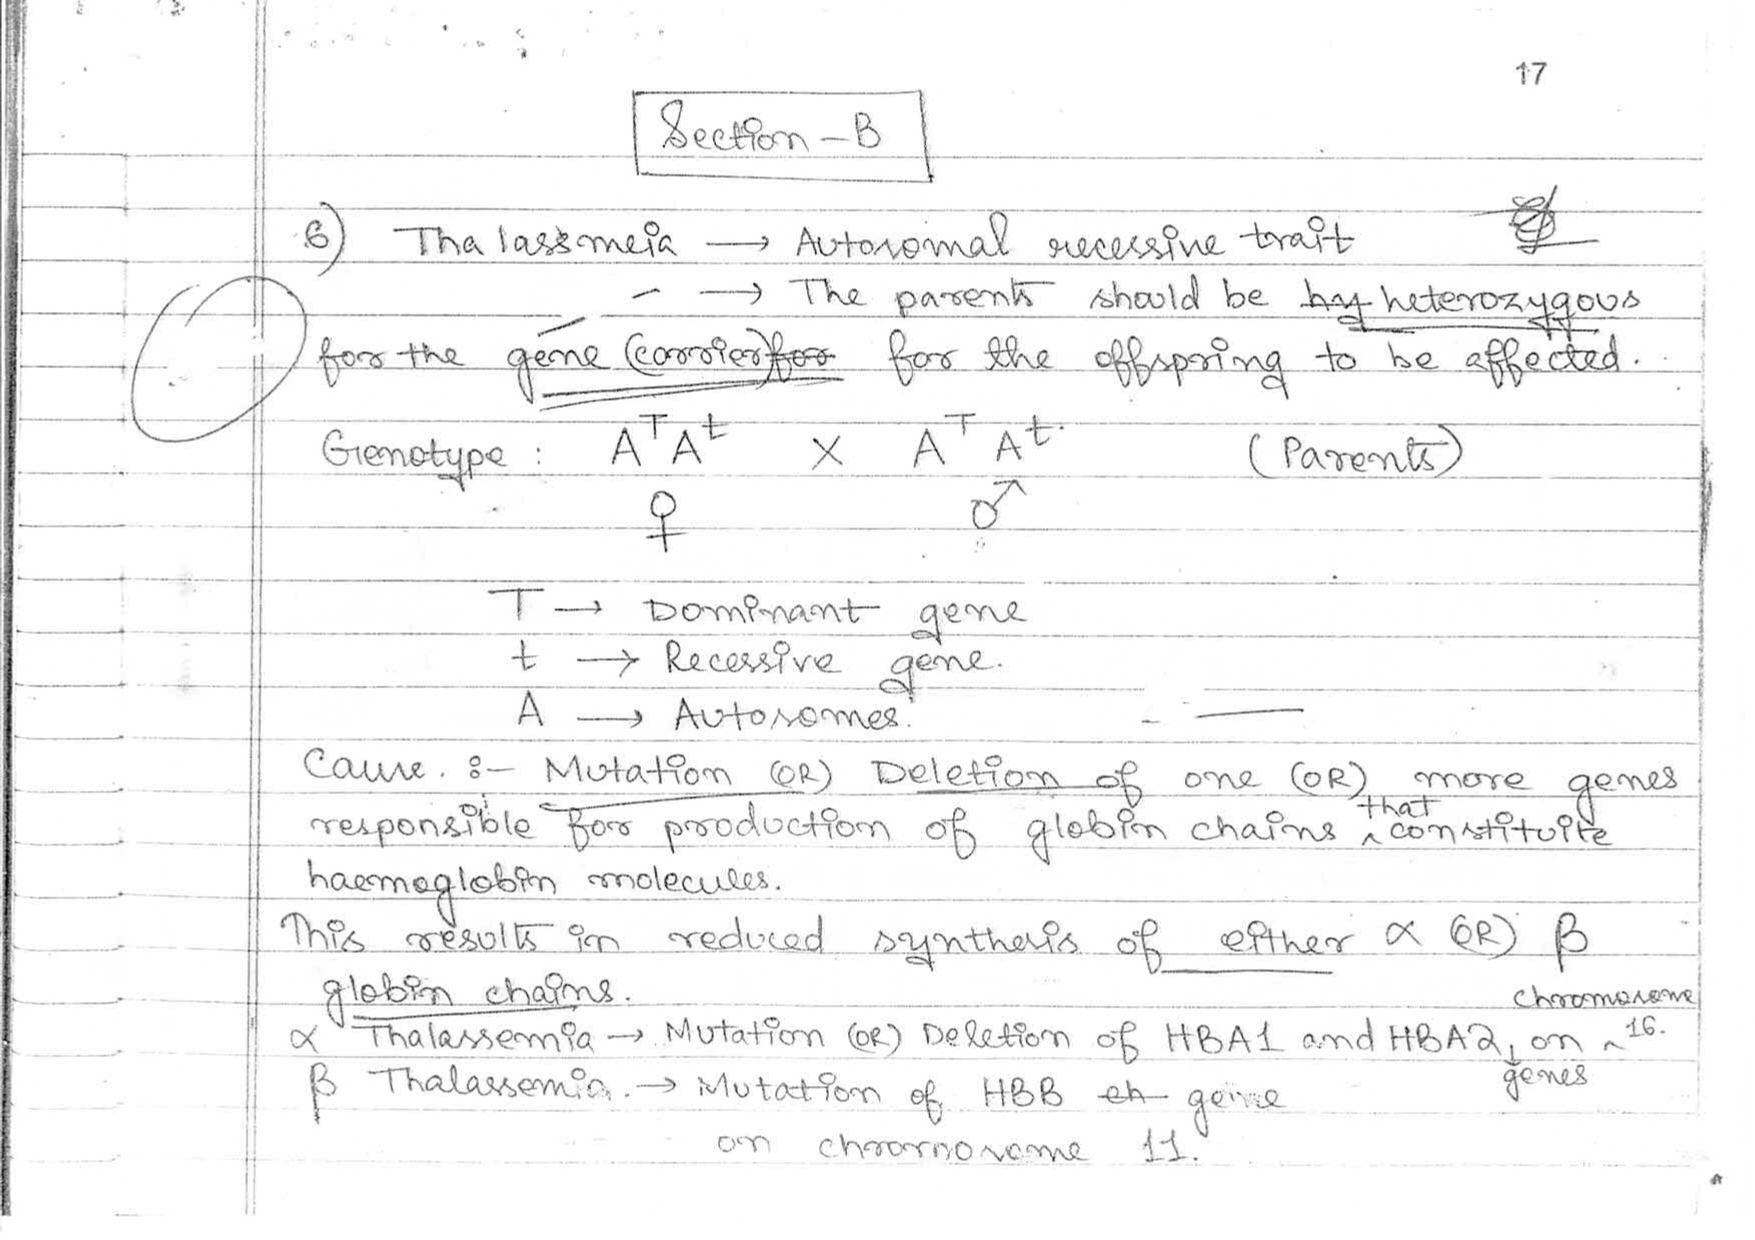 17
Section - B
6) Thalassmeia → Autosomal recessive trait
→ The parents should be hy heterozygous
for the gene (carrier) for for the offspring to be affected.
Genotype : Aᵀ Aᵗ X Aᵀ Aᵗ. (Parents)
♀ ♂
T → Dominant gene
t → Recessive gene.
A → Autosomes.
Cause. :- Mutation (OR) Deletion of one (OR) more genes
responsible for production of globin chains ^that constituite
haemoglobin molecules.
This results in reduced synthesis of either α (OR) β
globin chains.
α Thalassemia → Mutation (OR) Deletion of HBA1 and HBA2 genes on ^chromosome 16.
β Thalassemia. → Mutation of HBB gene
on chromosome 11.